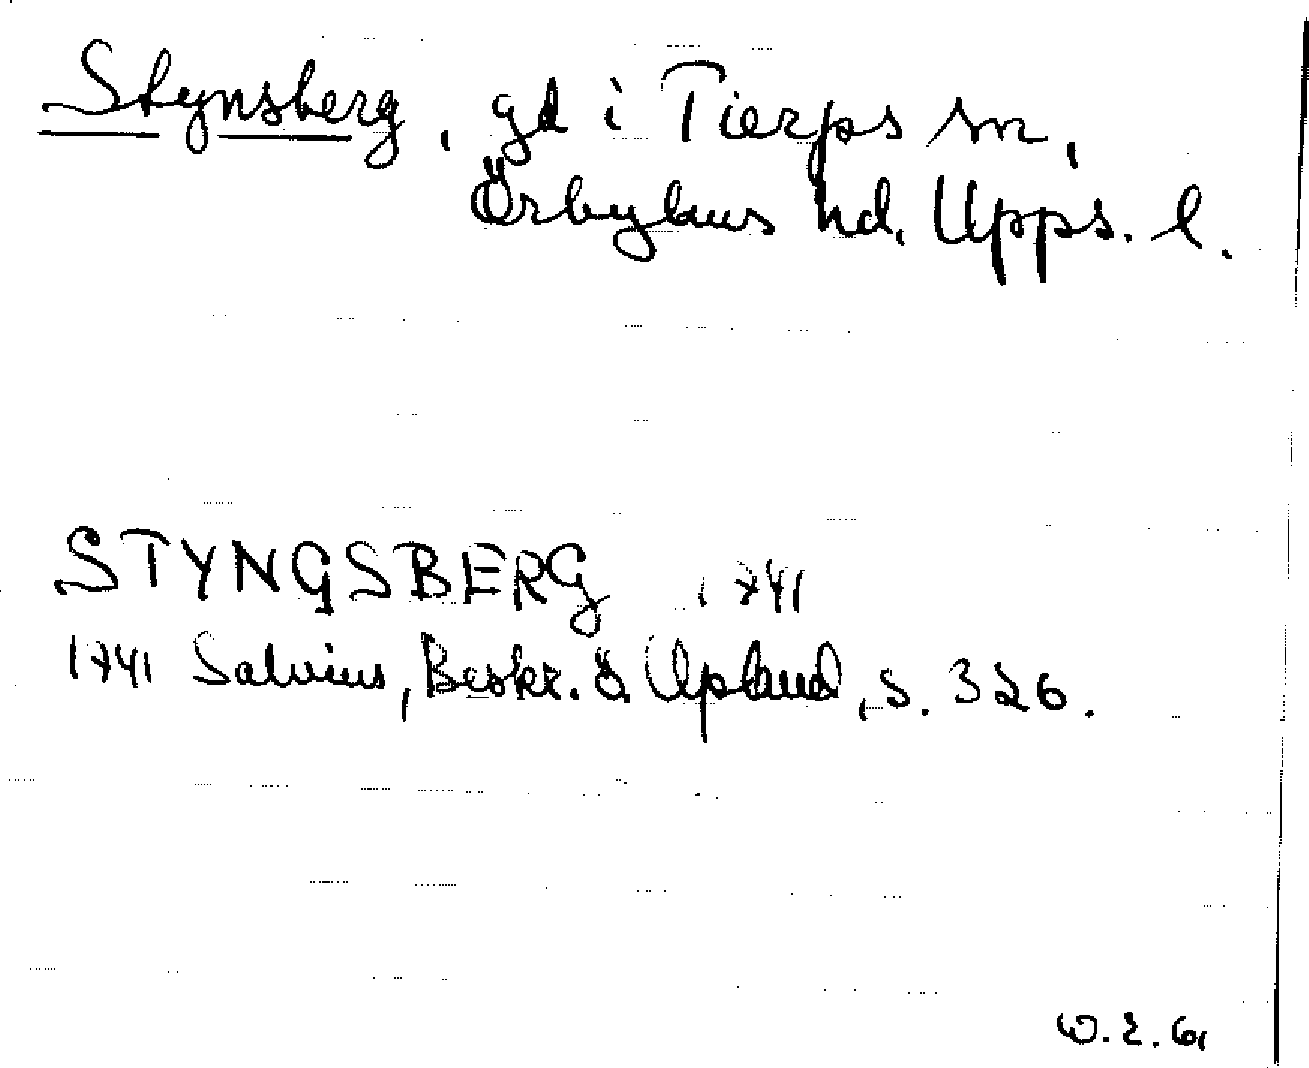 Stynsberg, gd i Tierps sn,
Örbyhus hd. Upps. l.
STYNGSBERG 1741
1741 Salvius, Beskr. ö. Upland, s. 326.